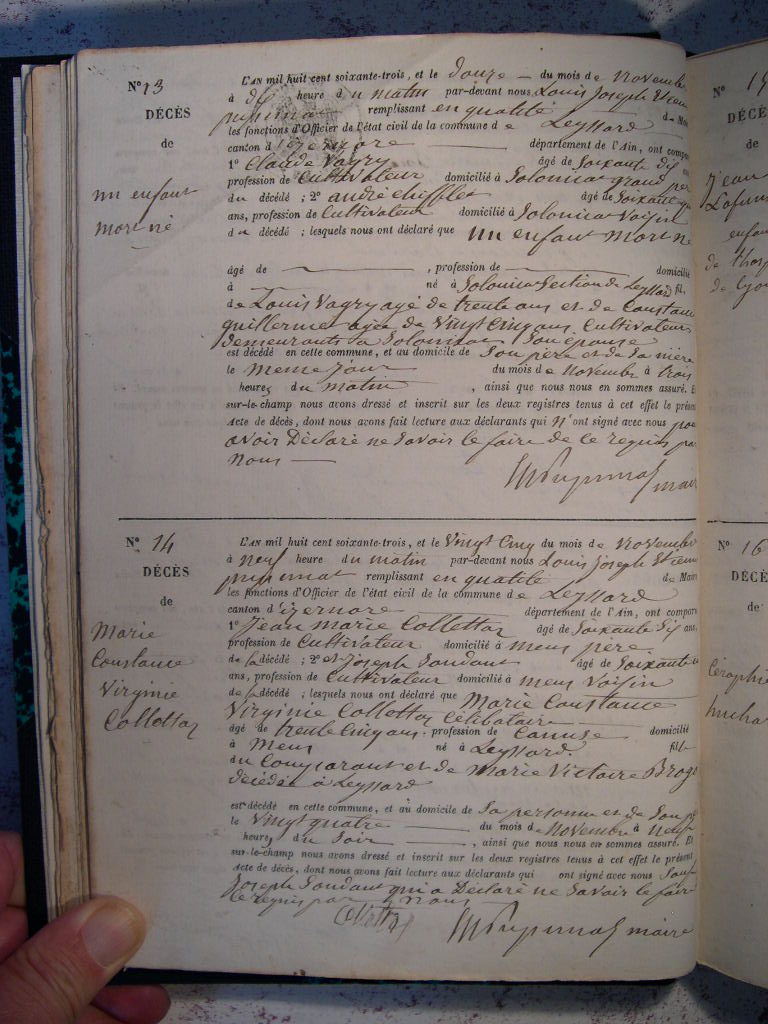 N° 13
DÉCÈS
de
un enfant
mort né
L'AN mil huit cent soixante-trois, et le douze du mois de Novembre
à dix heure du matin par-devant nous Louis Joseph Etien
remplissant en qualité de Mai
les fonctions d'Officier de l'état civil de la commune de Leyssard
canton d'izernore département de l'Ain, ont compa
1° Claude Vagry âgé de Soixante dix
profession de Cultivateur domicilié à Solomiat grand père
du décédé ; 2° andré chifflet âgé de Soixante
ans, profession de Cultivateur domicilié à Solomiat Voisin
du décédé ; lesquels nous ont déclaré que un enfant mort né
âgé de , profession de domicilié
à né à Solomiat Section de Leyssard fil
de Louis Vagry agé de trente ans et de Constan
guillerme agée de Vingt Cinq ans, Cultivateurs
demeurants à Solomiat Son epouse
est décédé en cette commune, et au domicile de Son père et de Sa mère
le meme jour du mois de Novembre à trois
heures du matin , ainsi que nous nous en sommes assuré. E
sur-le-champ nous avons dressé et inscrit sur les deux registres tenus à cet effet le présen
Acte de décès, dont nous avons fait lecture aux déclarants qui n'ont signé avec nous pour
avoir Déclaré ne Savoir le faire de ce requis par
Nous
maire
N° 14
DÉCÈS
de
Marie
Constance
Virginie
Collettaz
L'AN mil huit cent soixante-trois, et le Vingt Cinq du mois de Novembre
à neuf heure du matin par-devant nous Louis Joseph Etienn
remplissant en qualité de Maire
les fonctions d'Officier de l'état civil de la commune de Leyssard
canton d'izernore département de l'Ain, ont compar
1° Jean Marie Collettaz âgé de Soixante Dix ans,
profession de Cultivateur domicilié à mens père
de la décédé ; 2° et Joseph Soudant âgé de Soixante
ans, profession de Cultivateur domicilié à mens Voisin
de la décédé ; lesquels nous ont déclaré que Marie Constance
Virginie Collettaz Célibataire
âgé de trente Cinq ans, profession de domicilié
à Mens né à Leyssard. fille
du Comparant et de Marie Victoire
décédée à Leyssard
est décédé en cette commune, et au domicile de Sa personne et de Son p
le Vingt quatre du mois de Novembre à Neuf
heures du Soir , ainsi que nous nous en sommes assuré. Et
sur-le-champ nous avons dressé et inscrit sur les deux registres tenus à cet effet le présent
Acte de décès, dont nous avons fait lecture aux déclarants qui ont signé avec nous Sauf
Joseph Soudant qui a Déclaré ne Savoir le faire
de ce requis par nous
maire
N°
DÉCÈ
de
N° 16
DÉCÈ
de